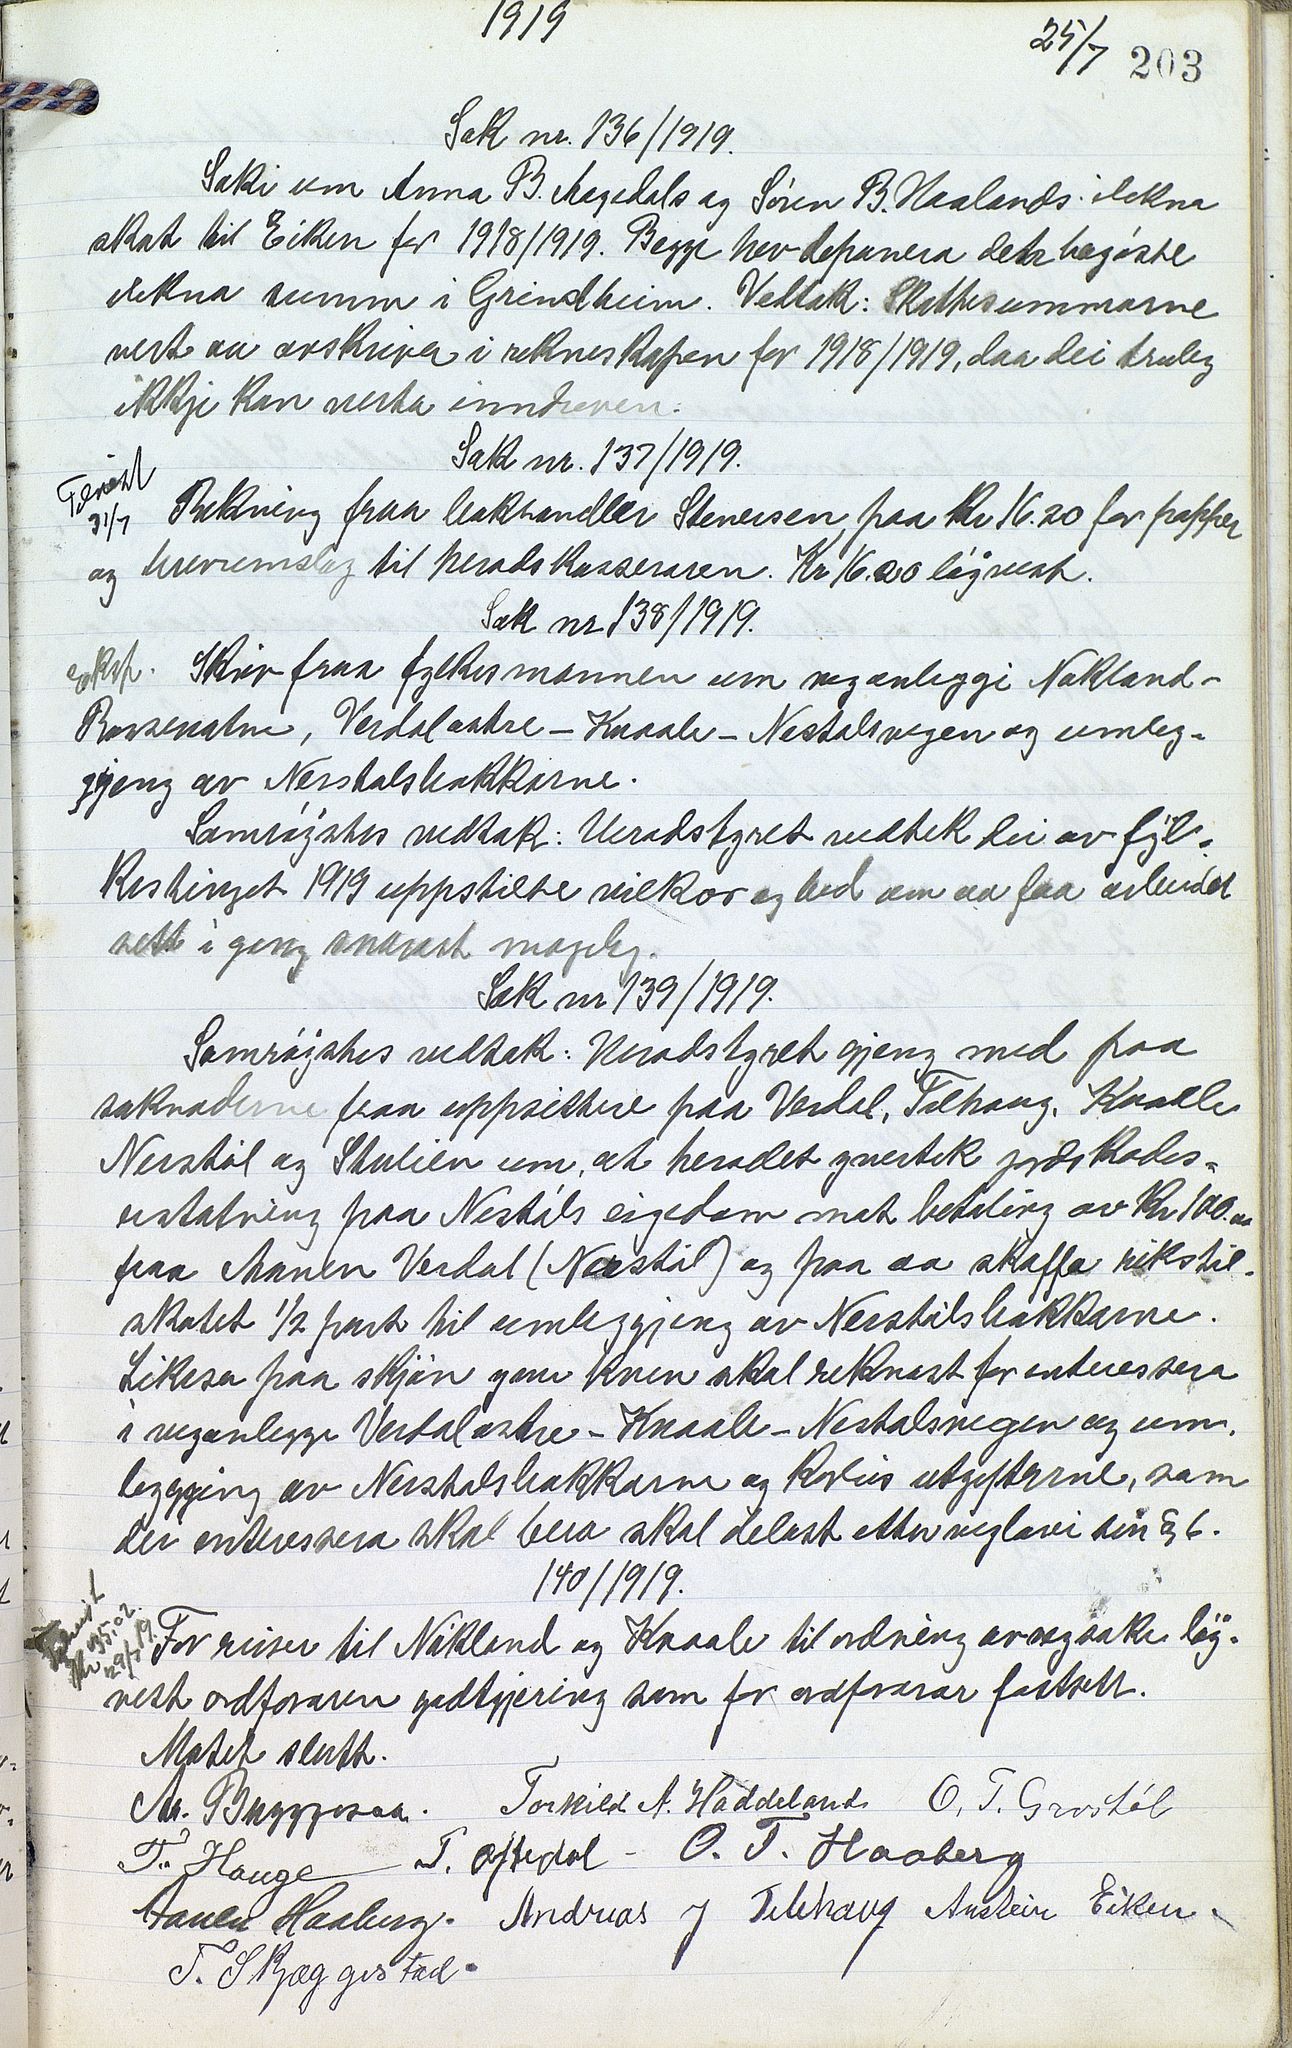 1919
25/7 203
Sak nr. 136/1919.
Saki um Anna B. Møgedals og Søren B. Haalands ilikna
skat til Eiken for 1918/1919. Begge hev deponera det høgöste
likna summ i Grindheim. Vedtak: Skattesummarne
vert aa avskriva i rekneskapen for 1918/1919, daa dei truleg
ikkje kan verta inndreven.
Sak nr. 137/1919.
31/7 Rekning fraa bokhandler Stenersen paa Kr 16.20 for papper
og brevumslag til heradskasseraren. Kr 16.20 lögvest.
Sak nr 138/1919.
Eksp. Skriv fraa fylkesmannen um veganleggi Nökland-
Rossevatne, Verdal östre - Knaale - Nestölsvegen og umleg-
gjeng av Nerstölsbakkarne.
Samröystes vedtak: Heradstyret vedtek dei av fyl-
kestinget 1919 uppstilte vilkor og bed um aa faa arbeidet
sett i gong snarast mogeleg.
Sak nr 139/1919.
Samröystes vedtak: Heradstyret gjeng med paa
söknaderne fraa uppsittere paa Verdal, Telhaug, Knaale
Nerstöl og Stulien um, at heradet yvertek jordskades-
erstatning paa Nestöls eigedom mot betaling av Kr 100.00
fraa Maren Verdal (Nerstöl) og paa aa skaffe rikstil-
skotet 1/2 part til umleggjeng av Nerstölsbakkarne.
Likeso paa skjön yver kven skal reknast for interessera
i veganlegge Verdal östre - Knaale - Nestölsvegen og um-
legging av Nerstölsbakkarne og korleis utgifterne, som
dei interessera skal bera skal delast etter veglovi sin § 6.
140/1919.
29/7 19. For reiser til Nökland og Knaale til ordning av vegsake lög-
vest ordforaren godtgjering som for ordforarar fastsett.
Mötet slutt.
Aa. Byggvaa. Torkild A. Haddeland O. T. Grostöl
T. Hauge T. Oftedal - O. T. Haaberg
Haaberg. Andreas J Telehaug Anstein Eiken.
T. Skjæggestad.